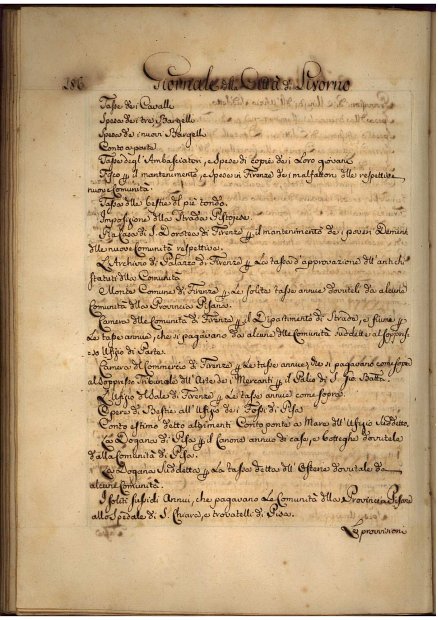 186 Giornale della Città di Livorno
Tasse dei Cavalli
Spese dei tre Bargelli
Spese dei nuovi Bargelli
Conto a parte
Tasse degl' Ambasciatori, e Spese di copie dei Loro giornali
Fisco per il mantenimento, e Spese in Firenze dei malfattori delle respettive
nuove Comunità
Tasse delle Bestie del piè tondo.
Imposizione della Strada Pistojese.
Pia Casa di S. Dorotea di Firenze per il mantenimento dei poveri Dementi
delle nuove Comunità respettive.
L'Archivio di Palazzo di Firenze per La tassa d'approvazione dell' antichi
Statuti della Comunità
Monte Comune di Firenze per Le solite tasse annue dovuteli da alcune
Comunità della Provincia Pisana.
Camera delle Comunità di Firenze per il Dipartimento di Strade, e fiumi per
Le tasse annue, che si pagavano da alcune delle Comunità suddette al soppres=
so Ufizio di Parte.
Camera del Commercio di Firenze per Le tasse annue, che si pagavano come sopra
al Soppresso Tribunale dell' Arte dei Mercanti per il Palio di S. Gio Batta.
L'Ufizio del Sale di Firenze per Le tasse annue come sopra.
Opere di Bestie all' Ufizio dei Fossi di Pisa
Conto estimo detto altrimenti Conto ponte a Mare dell' Ufizio suddetto.
La Dogana di Pisa per il Canone annuo di case, e botteghe dovutele
dalla Comunità di Pisa.
La Dogana Suddetta per La tassa detta dell' Osterie dovutale da
alcune Comunità.
I soliti sussidi Annui, che pagavano Le Comunità della Provincia Pisana
allo Spedale di S. Chiara, e trovatelli di Pisa.
Le provisioni